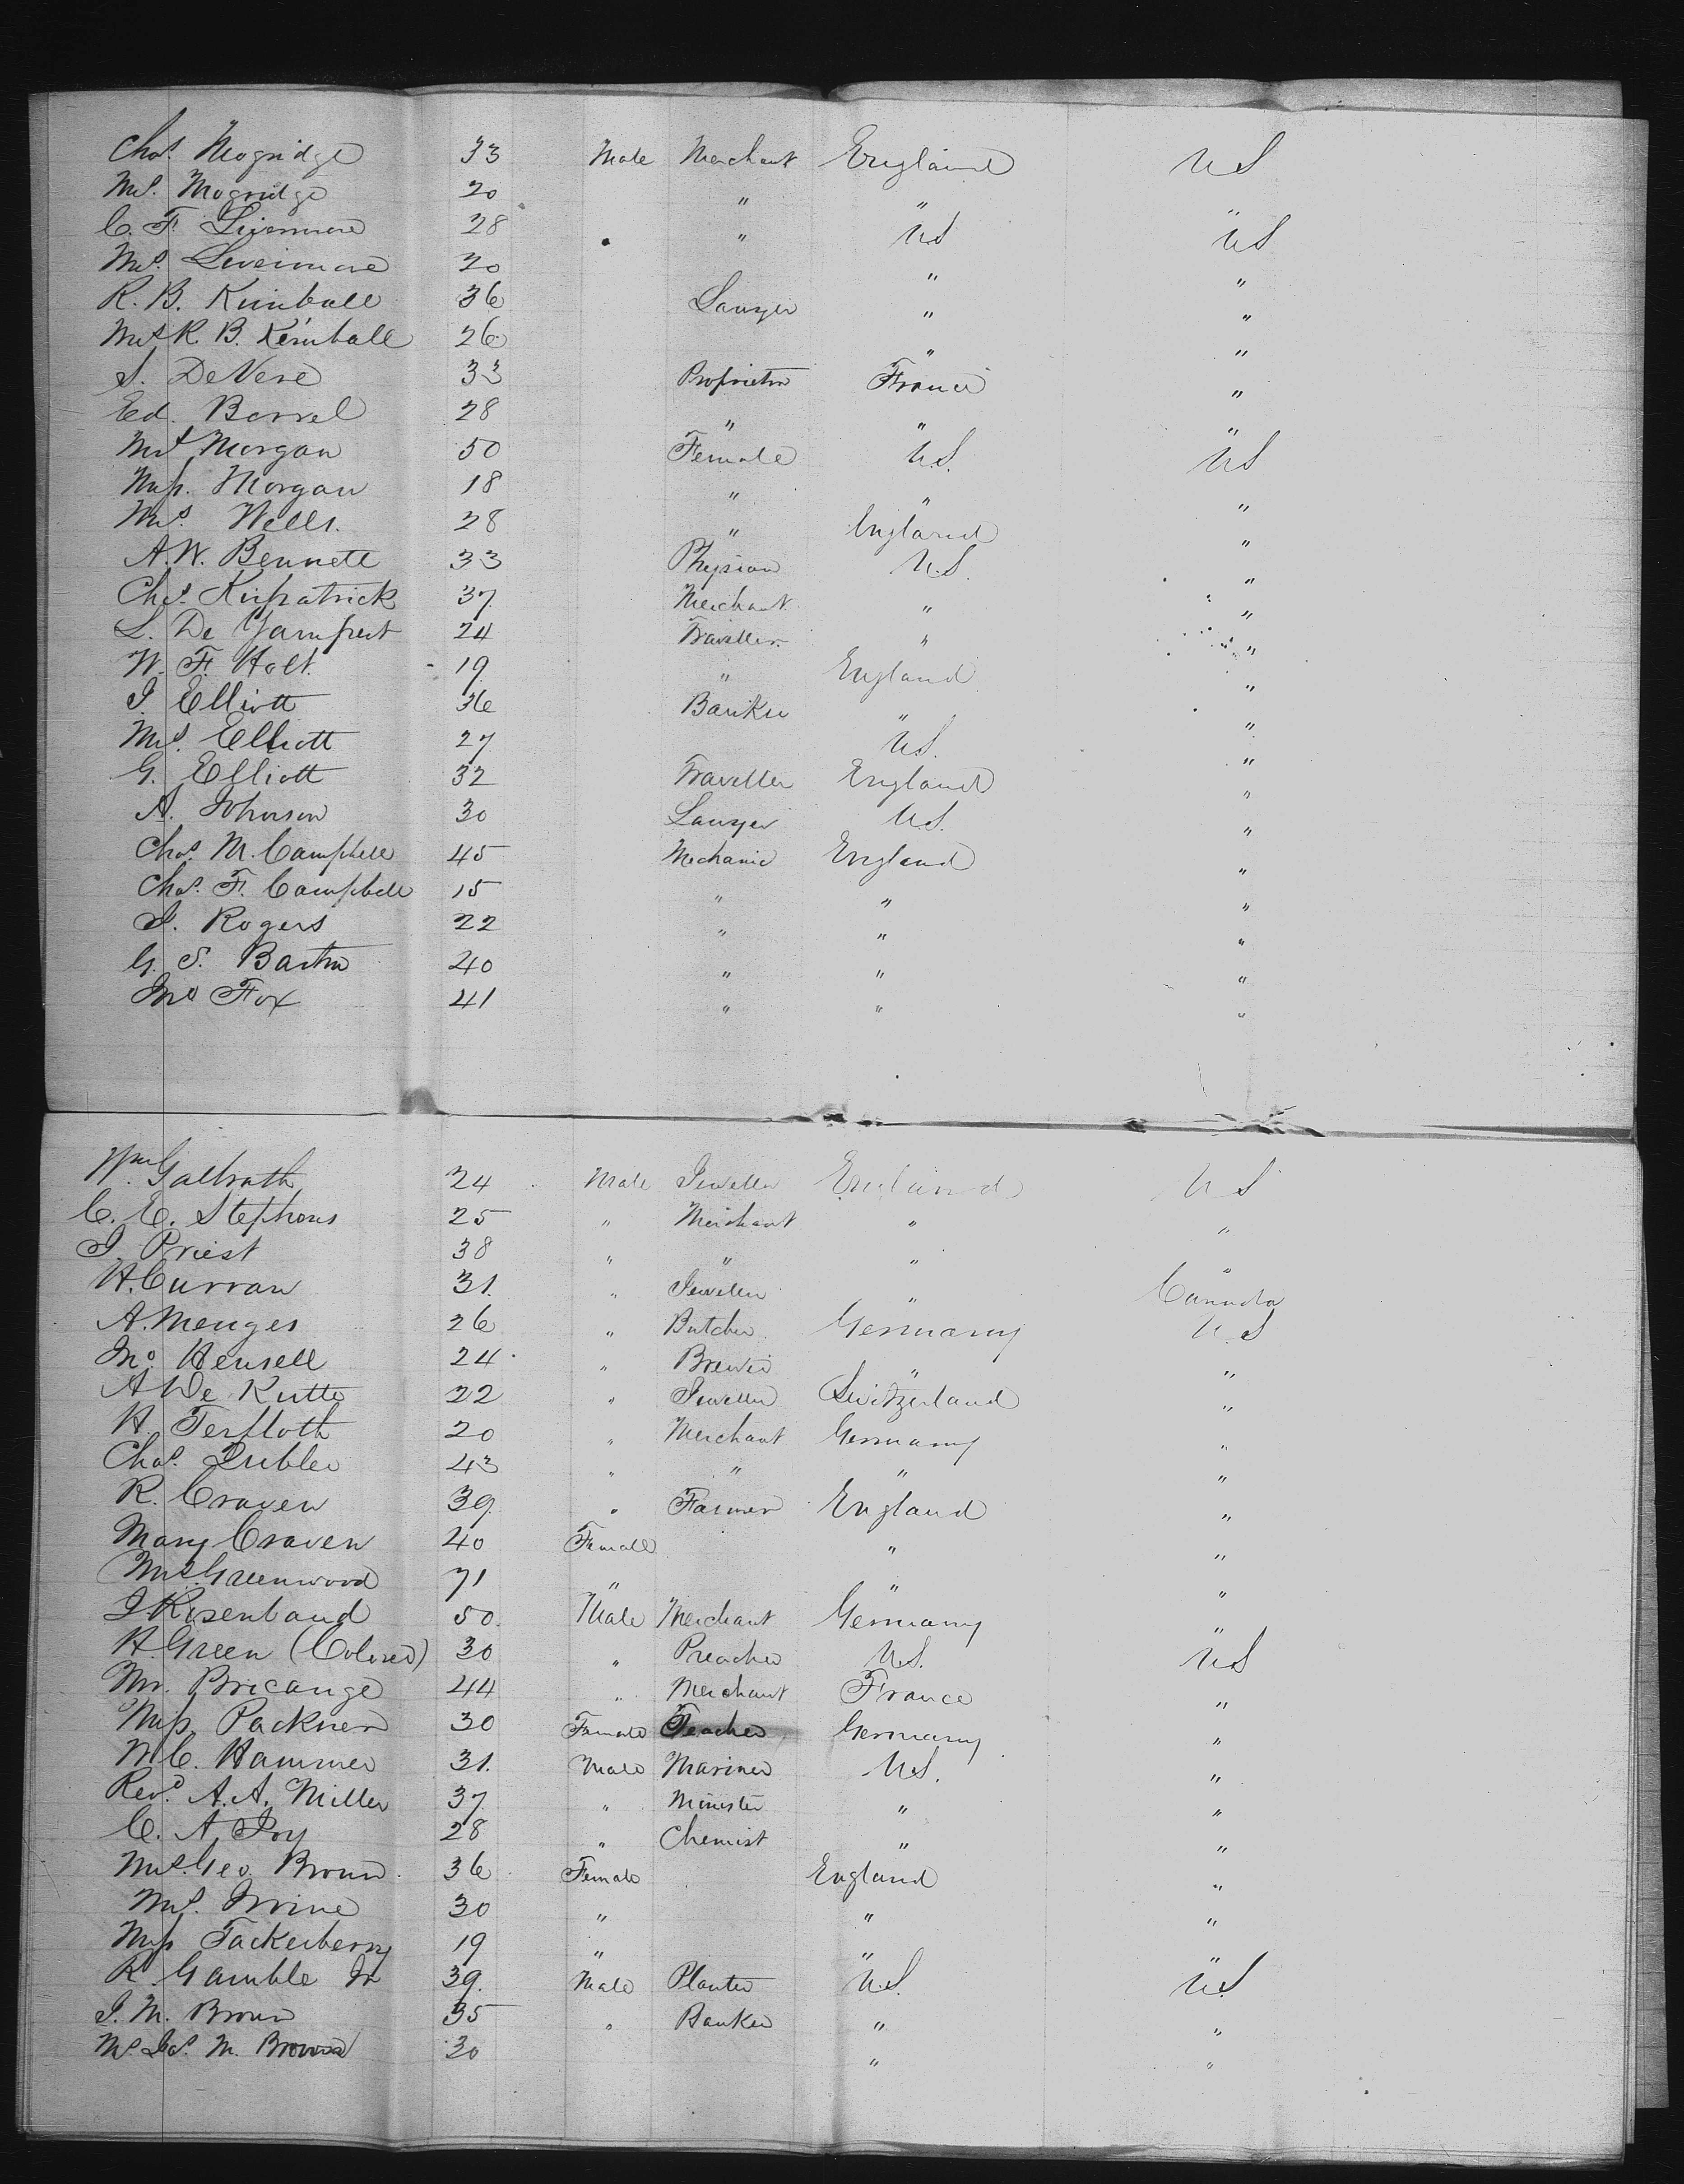 Chas. Mogridge 33 Male Merchant England U S
Mrs. Mogridge 20 " " "
C. F. Livermore 28 " U S U S
Mrs. Livermore 20 " "
R. B. Kimball 36 Lawyer " "
Mrs R. B. Kimball 26 " "
S. De Vere 33 Proprietor France "
Ed. Borrel 28 " " "
Mrs Morgan 50 Female U S. U S
Miss. Morgan 18 " " "
Mrs. Wells. 28 " England "
A. W. Bennett 33 Physician U.S. "
Chas. Kirpatrick 37 Merchant " "
L. De 24 Traveller " "
W. F. Holt. 19 " England "
J. Elliott 36 Banker " "
Mrs. Elliott 27 U S. "
G. Elliott 32 Traveller England "
A. Johnson 30 Lawyer U.S. "
Chas. M. Campbell 45 Mechanic England "
Chas. F. Campbell 15 " " "
J. Rogers 22 " " "
G. S. Barton 40 " " "
Jno Fox 41 " " "
Wm Galbrath 24 Male Jeweller England U S
C. E. Stephens 25 " Merchant " "
J. Priest 38 " " " "
H. Curran 31. " Jeweller " Cannada
A. Menges 26 " Butcher Germany U. S
Jno. Hensell 24 " Brewer " "
A De Kutte 22 " Jeweller Switzerland "
H. Terfloth 20 " Merchant Germany "
Chas. 43 " " " "
R. Craven 39 " Farmer England "
Mary Craven 40 Female " "
Mrs. Greenwood 71 " " "
J Risenbaud 50. Male Merchant Germany "
H. Green (Colored) 30 " Preacher U.S. U S
Mr. Bricange 44 " Merchant France "
Miss. Packner 30 Female Teacher Germany "
W. C. Hammer 31. Male Mariner U S. "
Revd. A. A. Miller 37 " Minister " "
C. A. Joy 28 " Chemist " "
Mrs. Geo. Brown 36 Female England "
Mrs. Irvine 30 " " "
Miss Tackerberry 19 " " "
R. Gamble Jr 39. Male Planter U.S. U.S
J. M. Brown 35 " Banker " "
Mrs Jas. M. Brown 30 " "